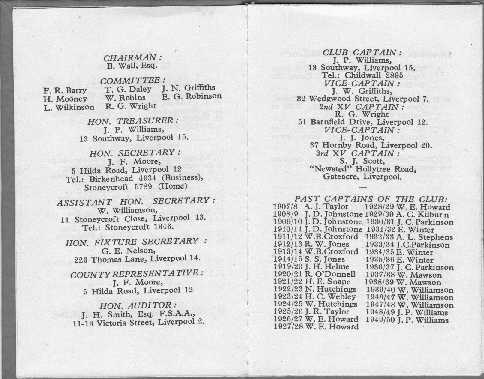 CHAIRMAN :
B. Wall, Esq.
COMMITTEE :
F. R. Barry T. G. Daley J. N. Griffiths
H. Mooney W. Robins E. G. Robinson
L. Wilkinson R. G. Wright
HON. TREASURER :
J. P. Williams,
13 Southway, Liverpool 15.
HON. SECRETARY :
J. F. Moore,
5 Hilda Road, Liverpool 12
Tel.: Birkenhead 4034 (Business),
Stoneycroft 5789 (Home)
ASSISTANT HON. SECRETARY :
W. Williamson,
11 Stoneycroft Close, Liverpool 13.
Tel.: Stoneycroft
HON. FIXTURE SECRETARY :
G. E. Nelson,
223 Thomas Lane, Liverpool 14.
COUNTY REPRESENTATIVE :
J. F. Moore,
5 Hilda Road, Liverpool 12
HON. AUDITOR :
J. H. Smith, Esq. F.S.A.A.,
11-13 Victoria Street, Liverpool 2.
CLUB CAPTAIN :
J. P. Williams,
13 Southway, Liverpool 15.
Tel.: Childwall
VICE-CAPTAIN :
J. W. Griffiths,
82 Wedgwood Street, Liverpool 7.
2nd XV CAPTAIN :
R. G. Wright
51 Barnfield Drive, Liverpool 12.
VICE-CAPTAIN :
J. J. Jones,
37 Hornby Road, Liverpool 20.
3rd XV CAPTAIN :
S. J. Scott,
"Newsted" Hollytree Road,
Gateacre, Liverpool.
PAST CAPTAINS OF THE CLUB:
1907/8 A. J. Taylor 1928/29 W. E. Howard
1908/9 J. D. Johnstone 1929/30 A. C. Kilburn
1909/10 J. D. Johnstone 1930/31 J. C. Parkinson
1910/11 J. D. Johnstone 1931/32 E. Winter
1911/12 W.B.Croxford 1932/33 A. L. Stephens
1912/13 R. W. Jones 1933/34 J.C.Parkinson
1913/14 W.B.Croxford 1934/35 E. Winter
1914/15 S. S. Jones 1935/36 E. Winter
1919/20 J. H. Helme 1936/37 J. C. Parkinson
1920/21 R. O'Donnell 1937/38 W. Mawson
1921/22 H. E. Soape 1938/39 W. Mawson
1922/23 N. Hutchings 1939/40 W. Williamson
1923/24 H. C. Webley 1946/47 W. Williamson
1924/25 W. Hutchings 1947/48 W. Williamson
1925/26 J. R. Taylor 1948/49 J. P. Williams
1926/27 W. E. Howard 1949/50 J. P. Williams
1927/28 W. E. Howard